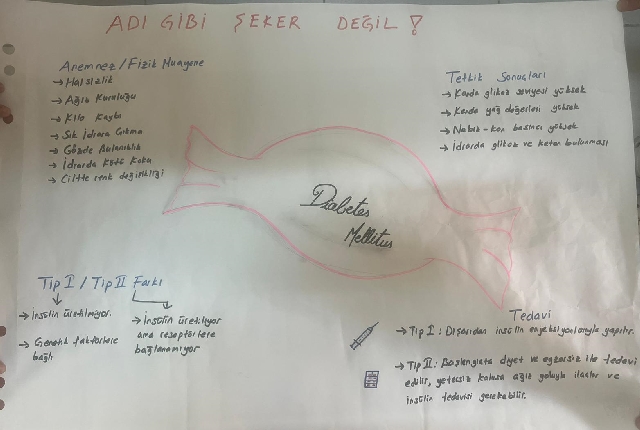 ADI GİBİ ŞEKER DEĞİL !
Anemnez / Fizik Muayene
→ Halsizlik
→ Ağız Kuruluğu
→ Kilo Kaybı
→ Sık İdrara Çıkma
→ Gözde Bulanıklık
→ İdrarda Kötü Koku
→ Ciltte renk değişikliği
Tetkik Sonuçları
→ Kanda glikoz seviyesi yüksek
→ Kanda yağ değerleri yüksek
→ Nabız - kan basıncı yüksek
→ İdrarda glikoz ve keton bulunması
Diabetes
Mellitus
Tip I / Tip II Farkı
→ İnsülin üretilmiyor.
→ Genetik faktörlere
bağlı
→ İnsülin üretiliyor
ama reseptörlere
bağlanamıyor
Tedavi
→ Tip I : Dışarıdan insülin enjeksiyonlarıyla yapılır.
→ Tip II : Başlangıçta diyet ve egzersiz ile tedavi
edilir, yetersiz kalırsa ağız yoluyla ilaçlar ve
insülin tedavisi gerekebilir.